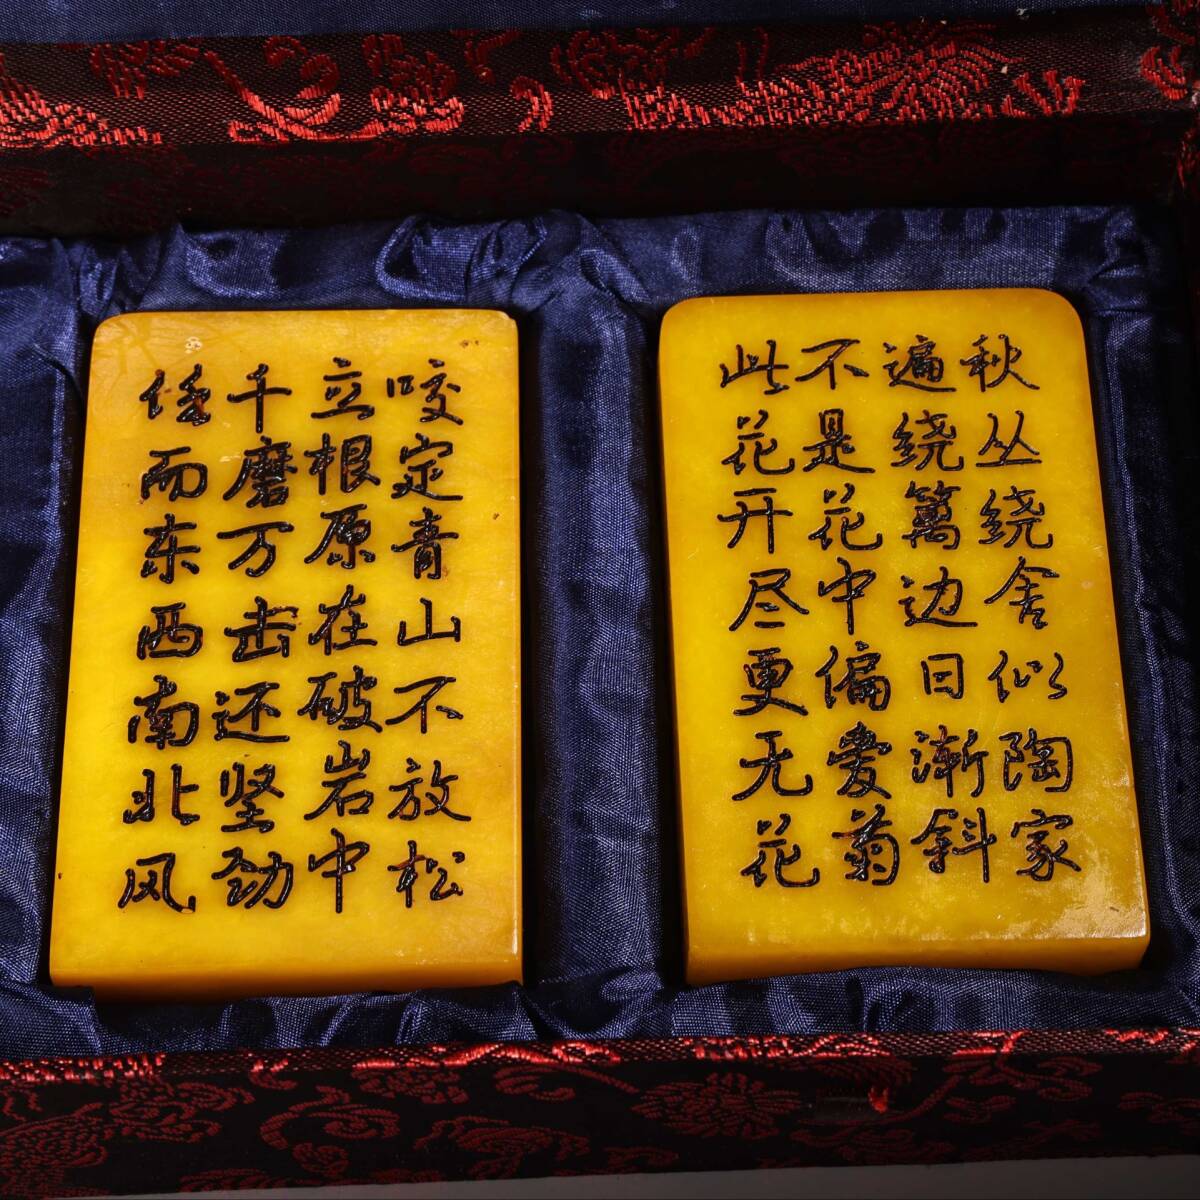 秋丛绕舍似陶家
遍绕篱边日渐斜
不是花中偏爱菊
此花开尽更无花
咬定青山不放松
立根原在破岩中
千磨万击还坚劲
任而东西南北风